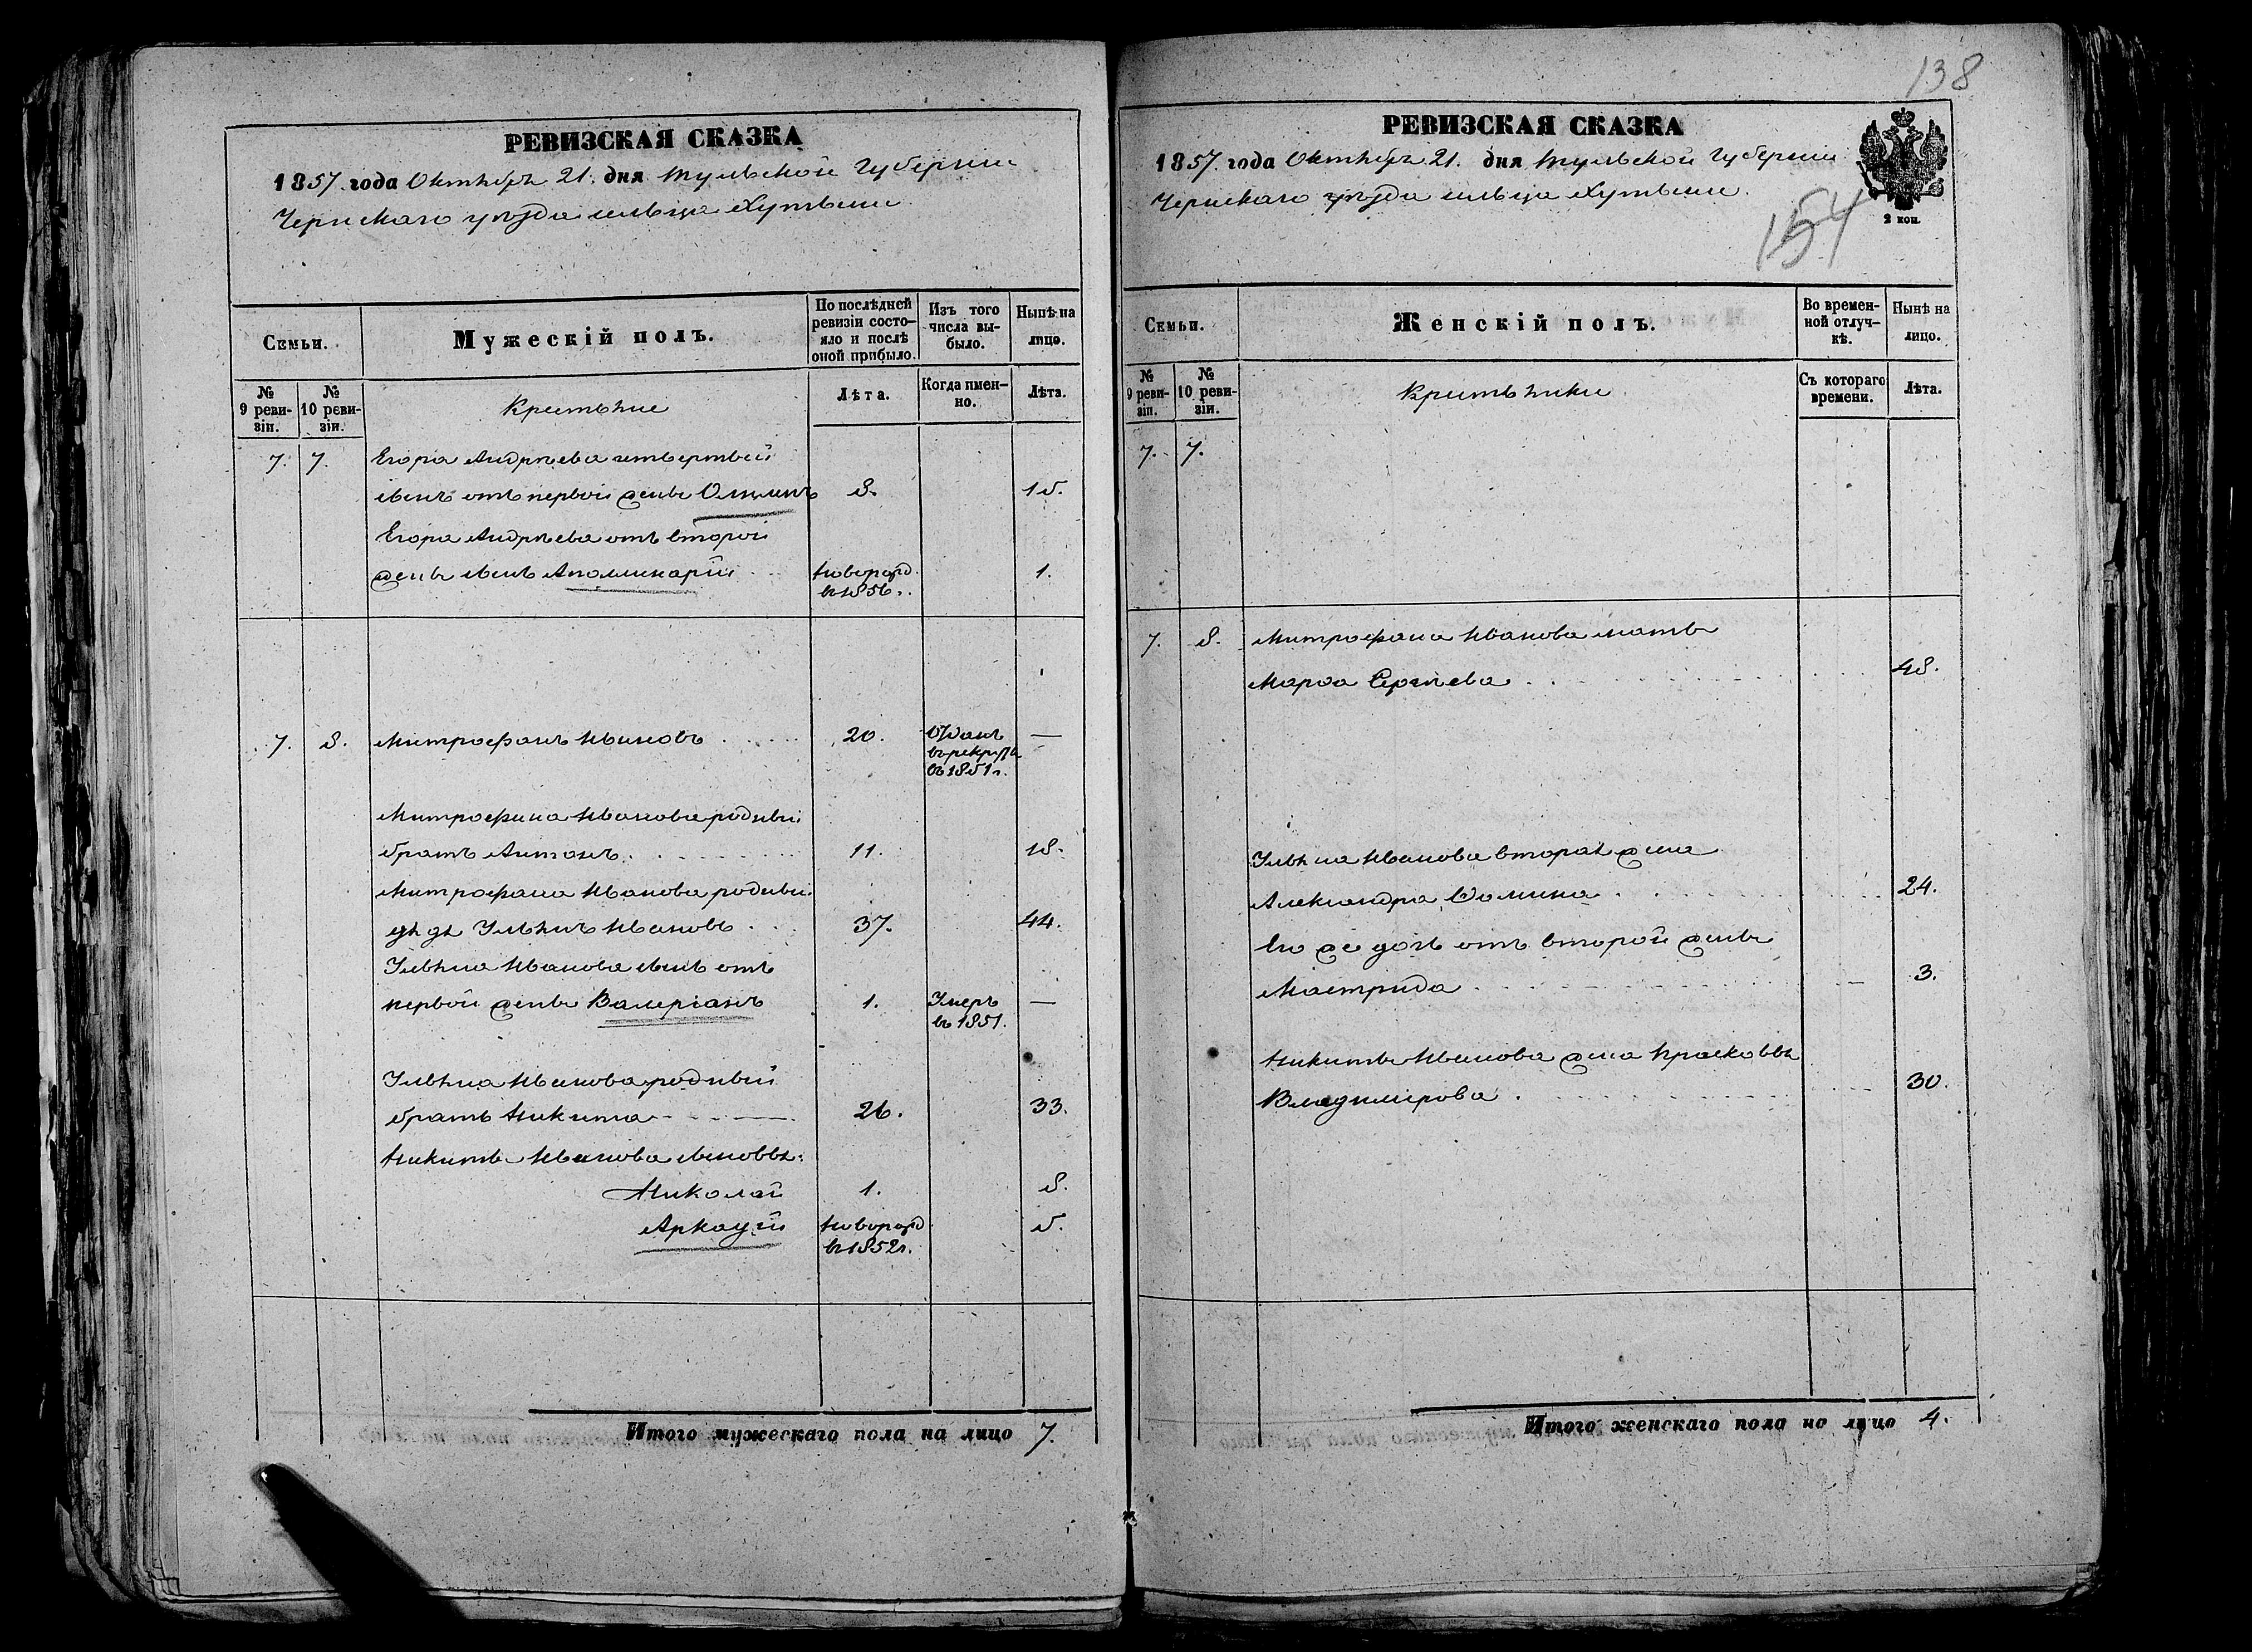 РЕВИЗСКАЯ СКАЗКА
1857. года Октября 21. дня Тульской Губернии
Чернскаго уѣзда сельца
Семьи.
Мужескій полъ.
По послѣдней ревизіи состояло и послѣ оной прибыло.
Изъ того числа выбыло.
Нынѣ на лицо.
№ 9 ревизіи.
№ 10 ревизіи.
Крестьяне
Лѣта.
Когда именно.
Лѣта.
7. 7. Егора Андреева четвертый
сынъ отъ первой жены 8. 15.
Егора Андреева отъ второй
жены сынъ Аполинарій новорожд. 1.
въ 1856.
7. 8. Митрофанъ Ивановъ 20. Отданъ —
въ рекруты
въ 1851 г.
Митрофана Иванова родный
братъ Антонъ 11. 18.
Митрофана Иванова родный
дядя Ульянъ Ивановъ 37. 44.
Ульяна Иванова сынъ отъ
первой жены Валеріанъ 1. Умеръ —
въ 1851.
Ульяна Иванова родный
братъ Никита 26. 33.
Никиты Иванова сыновья:
Николай 1. 8.
Аркадій новорожд 5.
въ 1852 г.
Итого мужескаго пола на лицо 7.
138
РЕВИЗСКАЯ СКАЗКА
1857. года Октября 21. дня Тульской Губерніи
Чернскаго уѣзда сельца
2 коп.
154
Семьи.
Женскій полъ.
Во временной отлучкѣ.
Нынѣ на лицо.
№ 9 ревизіи.
№ 10 ревизіи.
Крестьянки
Съ котораго времени.
Лѣта.
7. 7.
7. 8. Митрофана Иванова мать
Марѳа Сергѣева 48.
Ульяна Иванова вторая жена
Александра Фомина 24.
Его же дочь отъ второй жены
3.
Никиты Иванова жена Прасковья
Владимірова 30.
Итого женскаго пола на лицо 4.